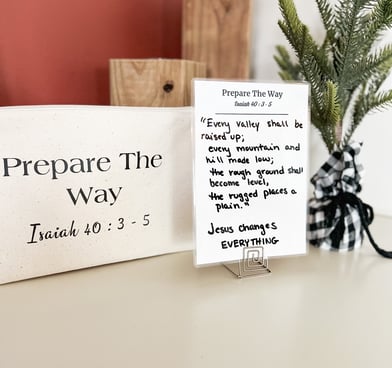 Prepare The
Way
Isaiah 40 : 3 - 5
Prepare The Way
Isaiah 40 : 3 - 5
"Every valley shall be
raised up;
every mountain and
hill made low;
the rough ground shall
become level,
the rugged places a
plain."
Jesus changes
EVERYTHING